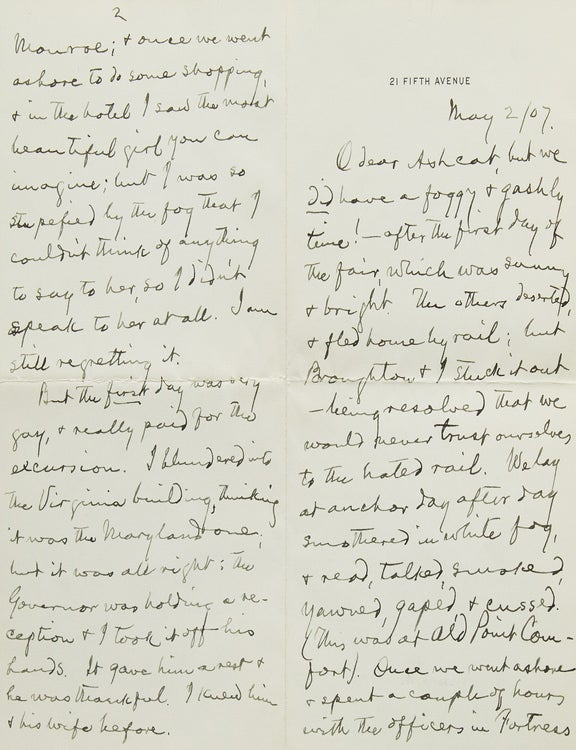 21 FIFTH AVENUE
May 2/07.
O dear Ashcat, but we
did have a foggy & gashly
time! — after the first day of
the fair, which was sunny
& bright. The others deserted,
& fled home by rail; but
Broughton & I stuck it out
— being resolved that we
would never trust ourselves
to the hated rail. We lay
at anchor day after day
smothered in white fog,
& read, talked, smoked,
yawned, gaped & cussed.
(This was at Old Point Com-
fort). Once we went ashore
& spent a couple of hours
with the officers in Fortress
2
Monroe; & once we went
ashore to do some shopping,
& in the hotel I saw the most
beautiful girl you can
imagine; but I was so
stupefied by the fog that I
couldn't think of anything
to say to her, so I didn't
speak to her at all. I am
still regretting it.
But the first day was very
gay, & really paid for the
excursion. I blundered into
the Virginia building, thinking
it was the Maryland one;
but it was all right: the
Governor was holding a re-
ception & I took it off his
hands. It gave him a rest &
he was thankful. I knew him
& his wife before.